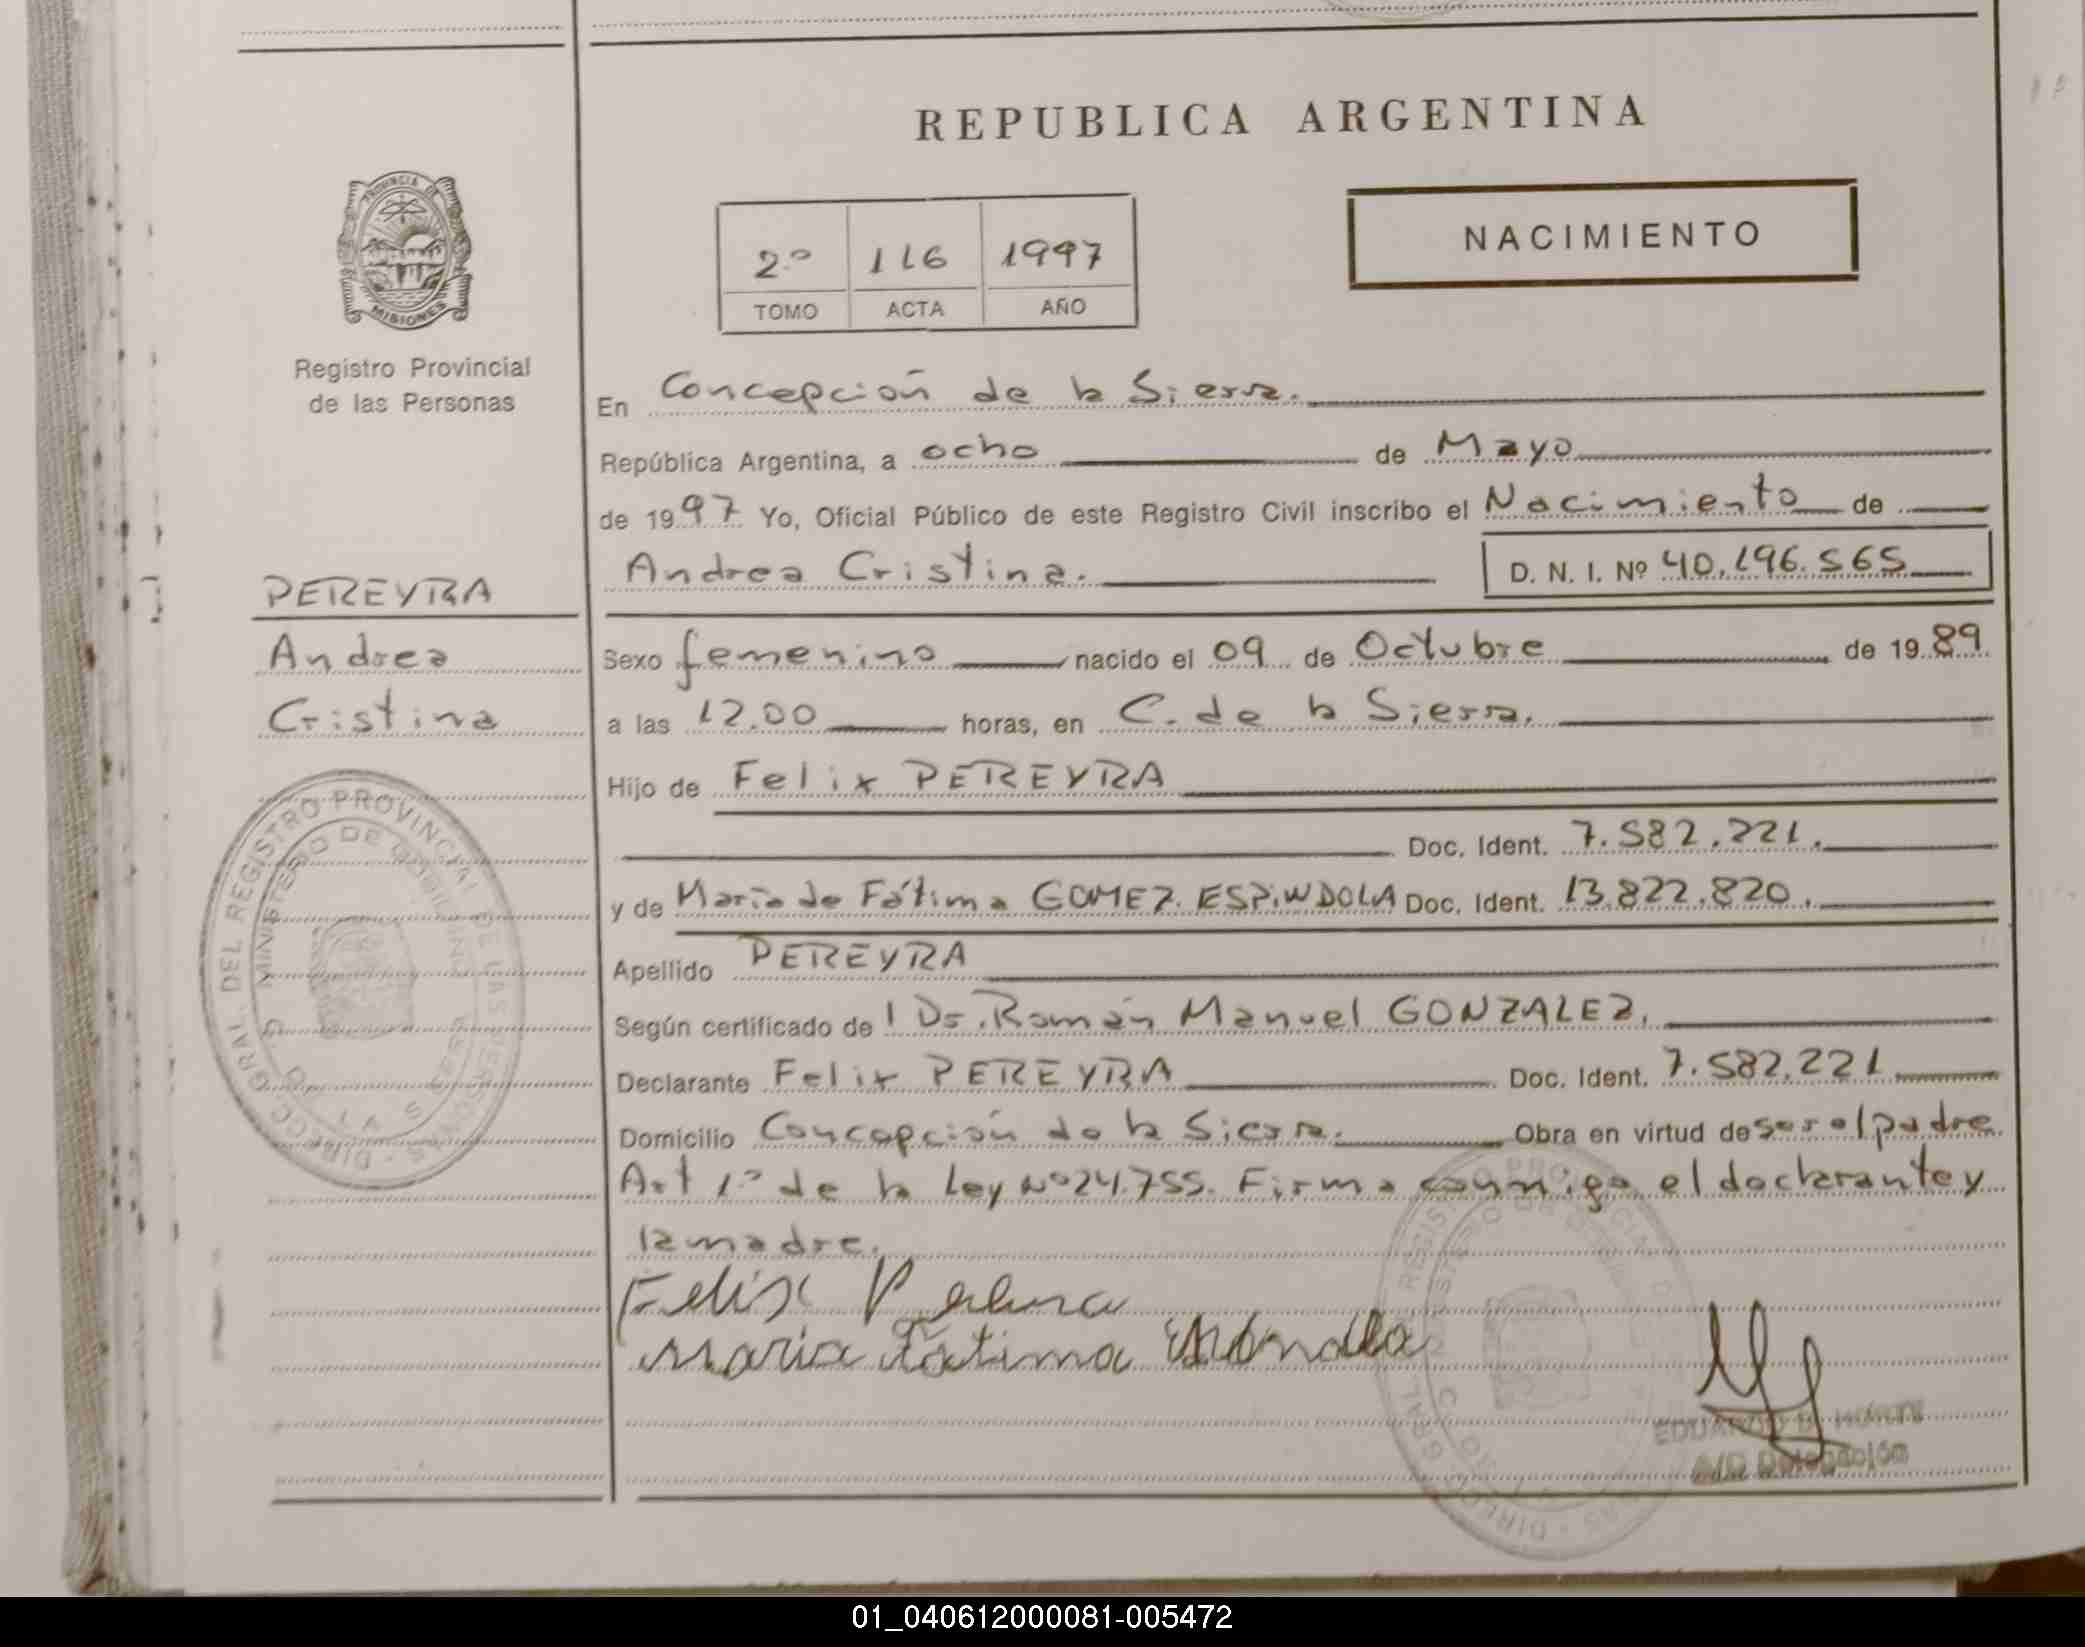 REPUBLICA ARGENTINA
NACIMIENTO
2.º 116 1997
TOMO ACTA AÑO
PROVINCIA DE MISIONES
Registro Provincial
de las Personas
En Concepción de la Sierra.
República Argentina, a ocho de Mayo
de 1997 Yo, Oficial Público de este Registro Civil inscribo el Nacimiento de
Andrea Cristina. D. N. I. Nº 40.196.565
PEREYRA
Andrea
Cristina
Sexo femenino nacido el 09 de Octubre de 1989
a las 12.00 horas, en C. de la Sierra.
Hijo de Felix PEREYRA
Doc. Ident. 7.582.221.
y de Maria de Fátima GOMEZ ESPINDOLA Doc. Ident. 13.822.820.
Apellido PEREYRA
Según certificado de l Dr. Román Manuel GONZALEZ.
Declarante Felix PEREYRA Doc. Ident. 7.582.221
Domicilio Concepción de la Sierra. Obra en virtud de ser el padre
Art 1º de la Ley Nº 24.755. Firma conmigo el declarante y
la madre.
Felix
Maria Fatima
EDUARDO
A/C Delegación
DIRECC GRAL. DEL REGISTRO PROVINCIAL DE LAS PERSONAS
MINISTERIO DE
01_040612000081-005472